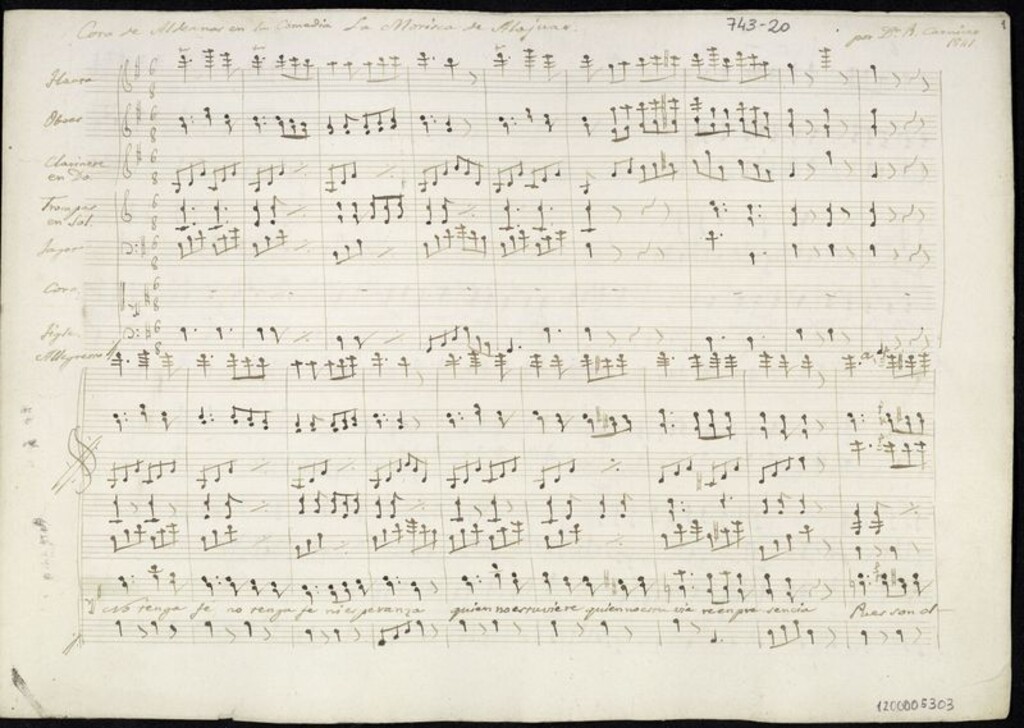 Coro de Aldeanas en la Comedia La Morisca de Alajuar.
743-20
por Dn. R. Carnicer
1841
1
Flauta
Oboes
Clarinete
en Do
Trompas
en Sol.
Fagot
Coro
Allegretto
No tenga fe no tenga fe ni esperanza quien no estuviere quien no estu viere en pre sencia Pues son ol-
1200005303